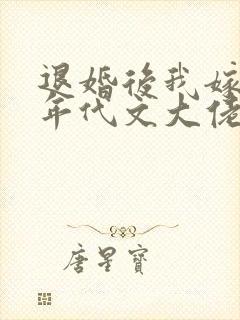 退婚後我嫁
年代文大佬
唐星寶